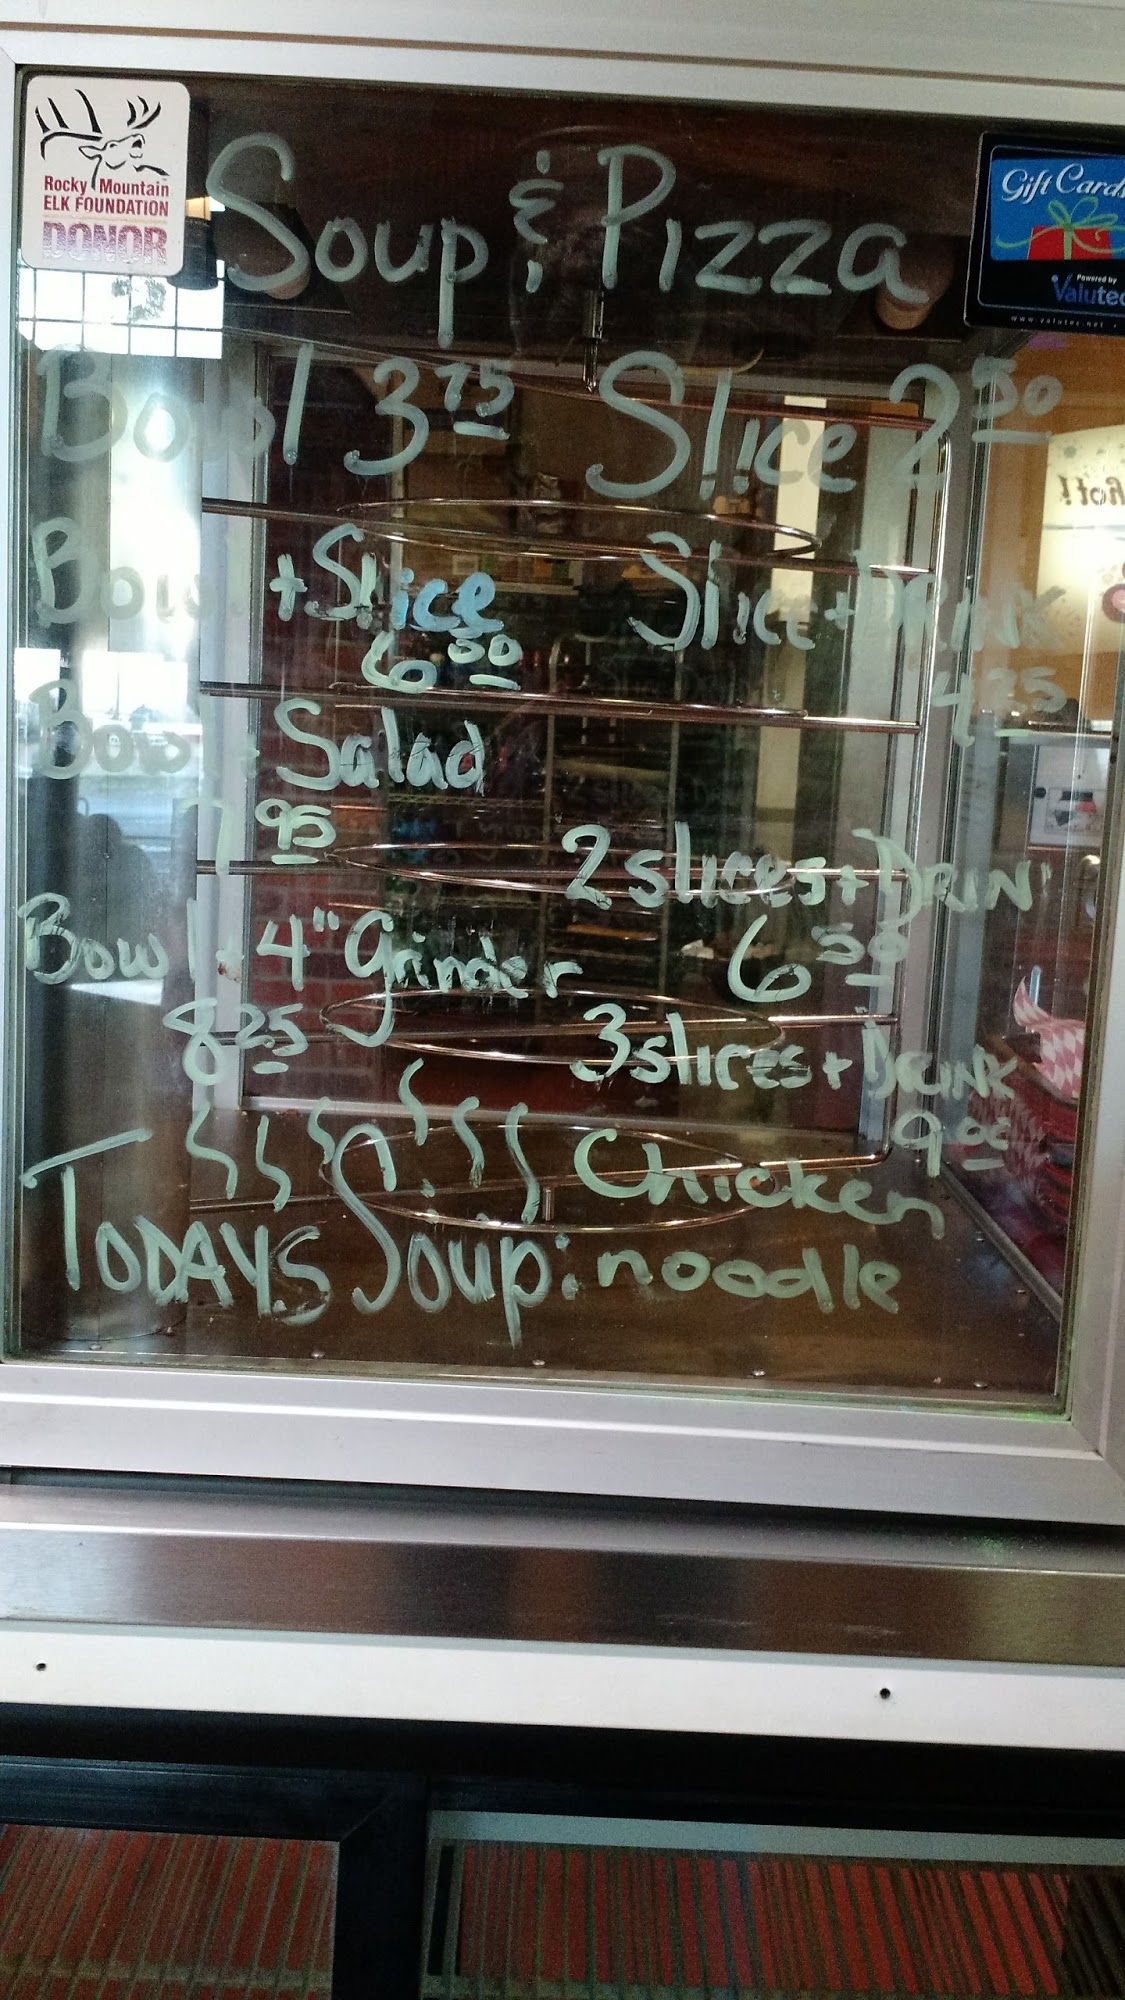 Rocky Mountain
ELK FOUNDATION
DONOR
Gift Cards
Powered by
Valutec
www.valutec.net
Soup & Pizza
Bowl 3 75
Slice 2 50
Bowl + Slice
6 50
Slice + Drink
4 25
Bowl + Salad
7 95
2 slices + DRIN
6 50
Bowl + 4" Grinder
8 25
3 slices + DRINK
9 00
TODAYS Soup: Chicken
noodle
hot!